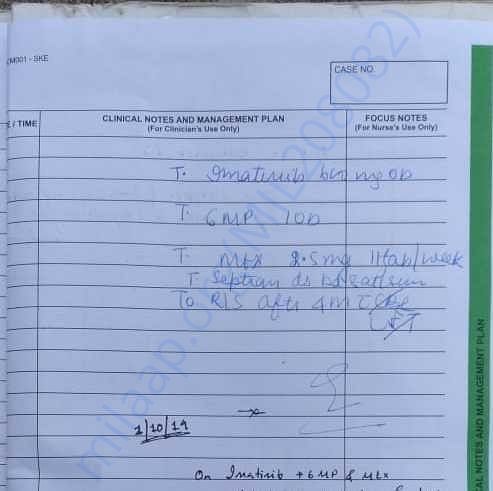 CM001 - SKE
CASE NO.
E / TIME
CLINICAL NOTES AND MANAGEMENT PLAN
(For Clinician's Use Only)
FOCUS NOTES
(For Nurse's Use Only)
T. Imatinib mg OD
T. 6MP 1OD
T. Mtx 2.5mg 11tab/week
T. Septran ds bd sat/sun
To R/S after 4M C CBC
LFT
1/10/19
On Imatinib + 6MP & Mtx
CAL NOTES AND MANAGEMENT PLAN
milaap.org/MIL208032)